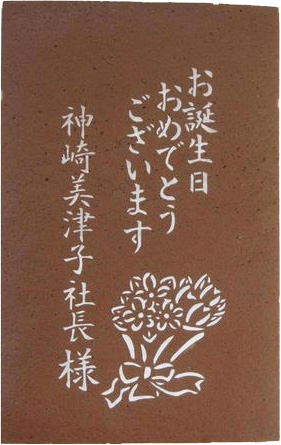 お誕生日
おめでとう
ございます
神崎美津子社長様